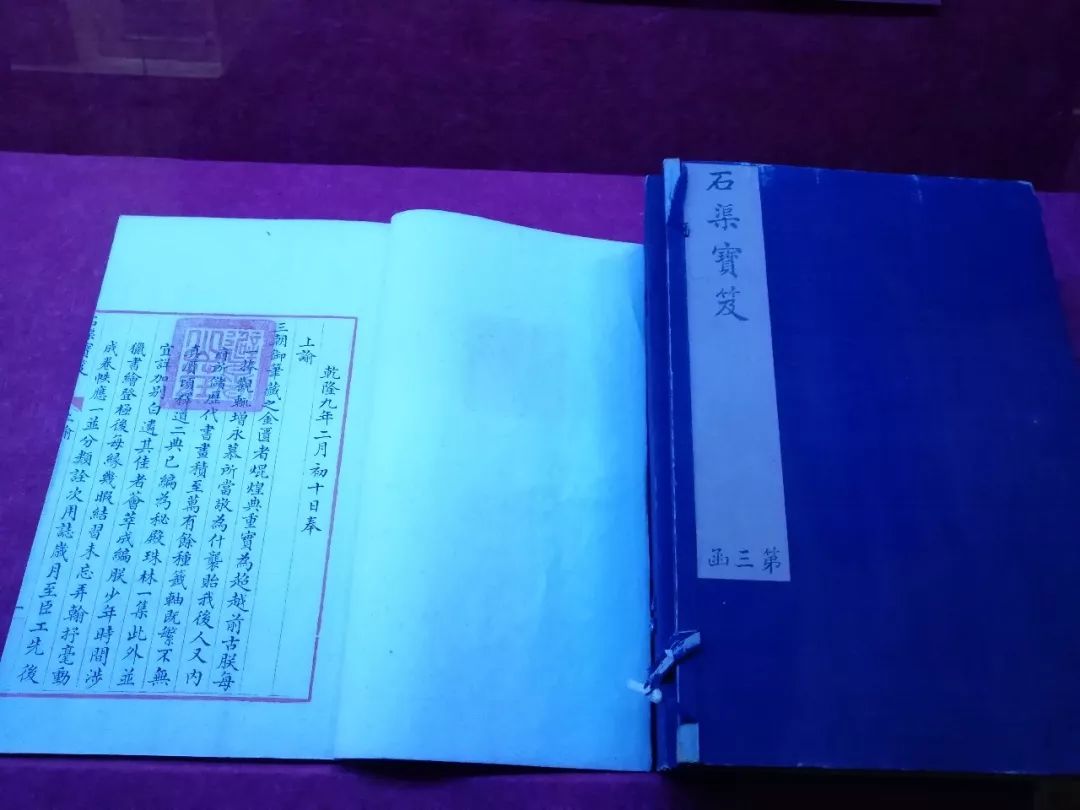 乾隆九年二月初十日奉
上諭
三朝御筆藏之金匱者焜煌典重實為超越前古朕每
一披觀輒增永慕所當敬為什襲貽我後人又內
府所儲歷代書畫積至萬有餘種籤軸既繁不無
真贗頃釋道二典已編為秘殿珠林一集此外並
宜詳加別白遴其佳者薈萃成編朕少年時間涉
獵書繪登極後每緣幾暇結習未忘弄翰抒毫動
成卷帙應一並分類詮次用誌歲月至臣工先後
石渠寶笈 上諭
石渠寶笈
第三函